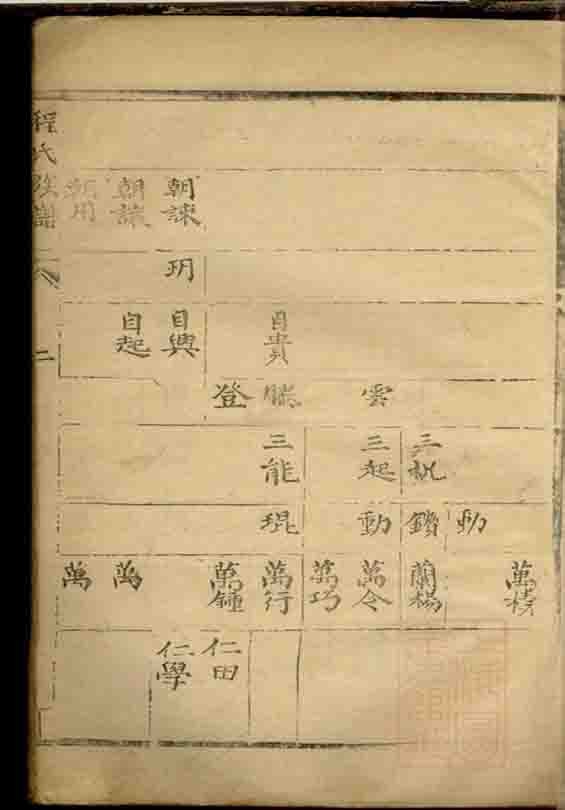 程氏族譜 二
朝諫 朝議 朝用
玥
自貴 自興 自起
雲 騰 登
三机 三起 三能
動 鑌 動 琨
萬榜 蘭楊 萬令 萬巧 萬行 萬鍾 萬 萬
仁田 仁學